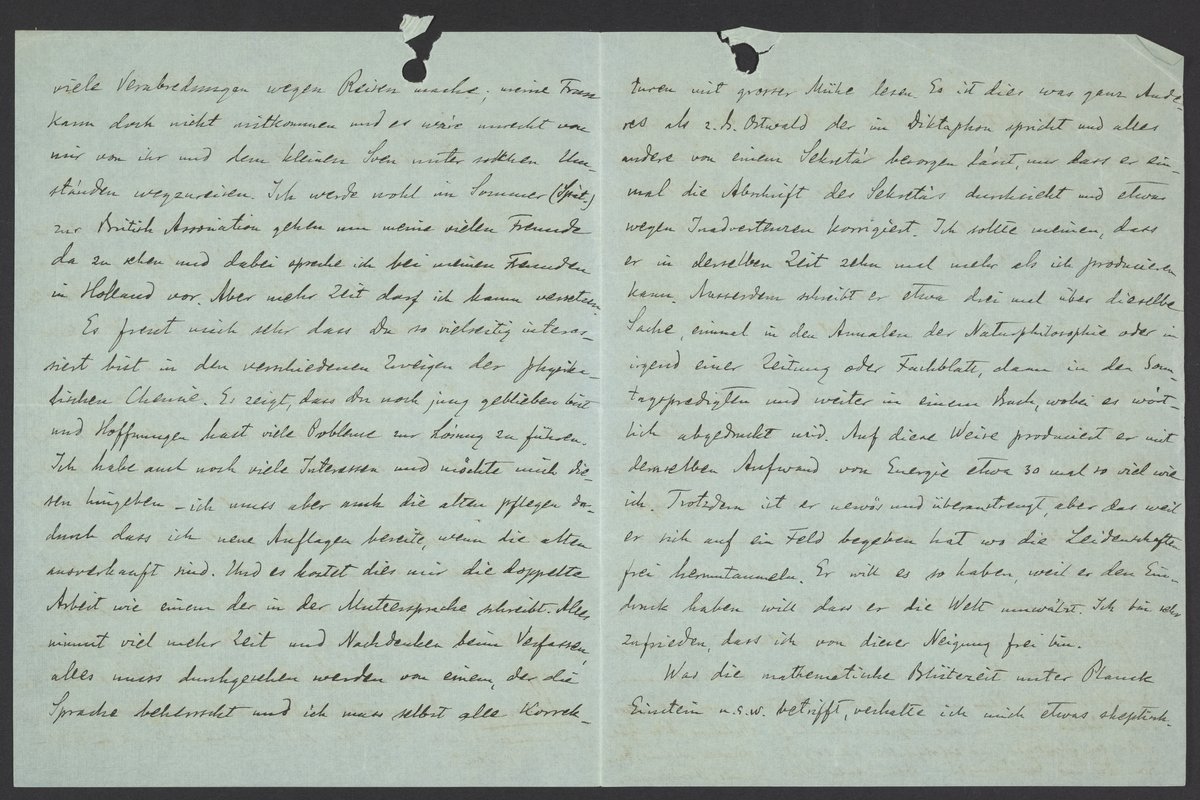 viele Verabredungen wegen Reisen mache; meine Frau
kann doch nicht mitkommen und es wäre unrecht von
mir von ihr und dem kleinen Sven unter solchen Um-
ständen wegzureisen. Ich werde wohl im Sommer (Spät.)
zur British Association gehen um meine vielen Freunde
da zu sehen und dabei spreche ich bei meinen Freunden
in Holland vor. Aber mehr Zeit darf ich kaum versetzen.
Es freut mich sehr dass Du so vielseitig interes-
siert bist in den verschiedenen Zweigen der physika-
lischen Chemie. Es zeigt, dass Du noch jung geblieben bist
und Hoffnungen hast viele Probleme zur Lösung zu führen.
Ich habe auch noch viele Interessen und möchte mich die-
sen hingeben – ich muss aber auch die alten pflegen da-
durch dass ich neue Auflagen bereite, wenn die alten
ausverkauft sind. Und es kostet dies mir die doppelte
Arbeit wie einem der in der Muttersprache schreibt. Alles
nimmt viel mehr Zeit und Nachdenken beim Verfassen,
alles muss durchgesehen werden von einem, der die
Sprache beherrscht und ich muss selbst alle Korrek-
turen mit grosser Mühe lesen. Es ist dies was ganz Ande-
res als z.B. Ostwald der im Diktaphon spricht und alles
andere von einem Sekretär besorgen lässt, nur dass er ein-
mal die Abschrift des Sekretärs durchsieht und etwas
wegen Inadvertenzen korrigiert. Ich sollte meinen, dass
er in derselben Zeit zehn mal mehr als ich producieren
kann. Ausserdem schreibt er etwa drei mal über dieselbe
Sache, einmal in den Annalen der Naturphilosophie oder in
irgend einer Zeitung oder Fachblatt, dann in den Sonn-
tagspredigten und weiter in einem Buch, wobei es wört-
lich abgedruckt wird. Auf diese Weise produciert er mit
demselben Aufwand von Energie etwa 30 mal so viel wie
ich. Trotzdem ist er nervös und überanstrengt, aber das weil
er sich auf ein Feld begeben hat wo die Leidenschaften
frei herumtaumeln. Er will es so haben, weil er den Ein-
druck haben will dass er die Welt umwälzt. Ich bin sehr
zufrieden, dass ich von dieser Neigung frei bin.
Was die mathematische Blütezeit unter Planck
Einstein u.s.w. betrifft, verhalte ich mich etwas skeptisch.